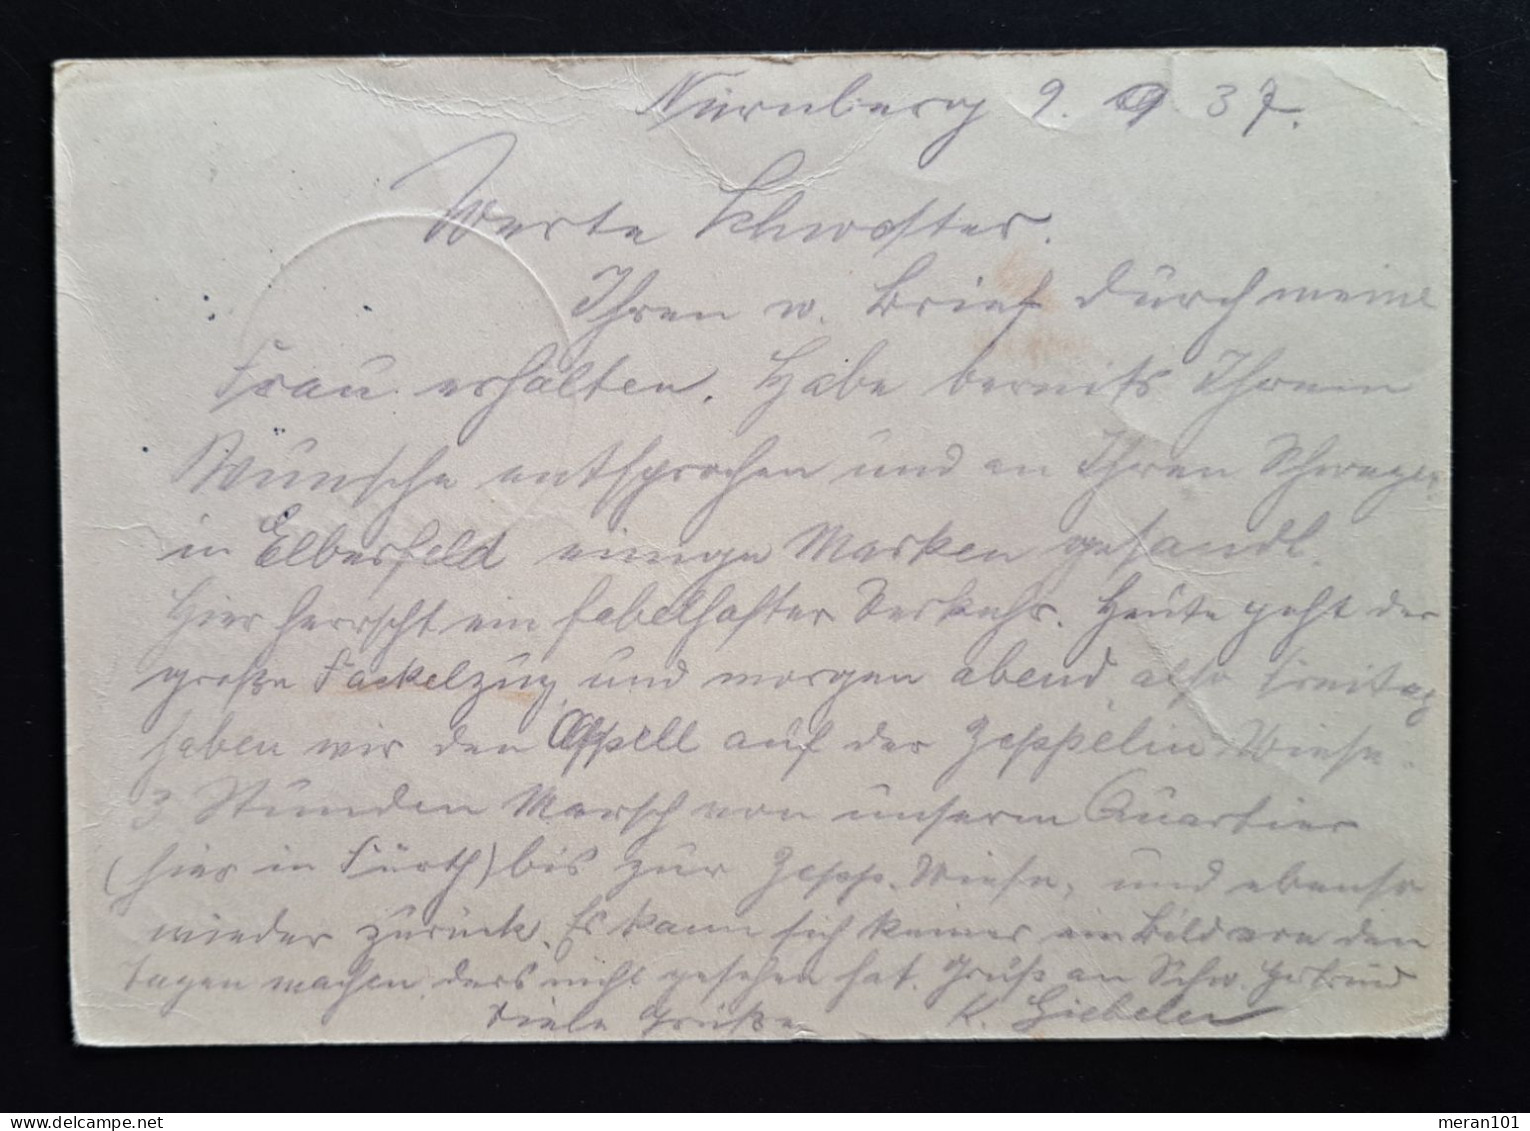 Nürnberg 9. 9. 37.
Werte Schwester.
Ihren w. Brief durch meine
Frau erhalten. Habe bereits Ihrem
Wunsche entsprochen und an Ihren Schwager
in Elberfeld einige Marken gesandt.
Hier herrscht ein fabelhafter Verkehr. Heute geht der
große Fackelzug und morgen abend also Freitag
haben wir den Appell auf der Zeppelin Wiese.
3 Stunden Marsch von unserm Quartier
(hier in Fürth) bis zur Zepp. Wiese, und ebenso
wieder zurück. Es kann sich keiner ein Bild von den
Tagen machen, ders nicht gesehen hat. Gruß an Schw. Gertrud
Viele Grüße K. Giebeler
www.delcampe.net
meran101